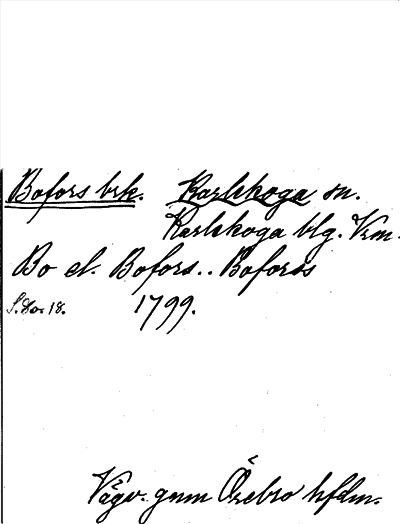 Bofors brk. Karlskoga sn.
Karlskoga blg. Vrm.
Bo el. Bofors.. Boforss
1799.
Vägv. gnm Örebro hfdm.